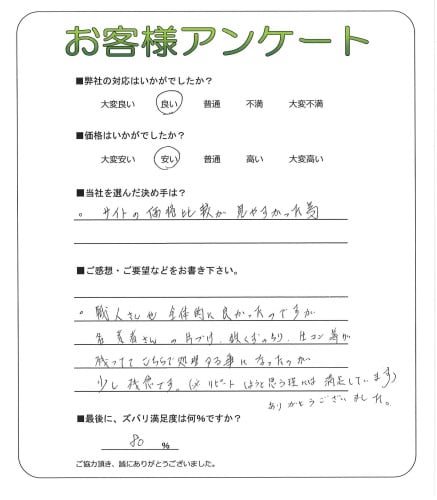 お客様アンケート
■弊社の対応はいかがでしたか？
大変良い 良い 普通 不満 大変不満
■価格はいかがでしたか？
大変安い 安い 普通 高い 大変高い
■当社を選んだ決め手は？
。サイトの価格比較が見やすかった為
■ご感想・ご要望などをお書き下さい。
。職人さんも全体的に良かったのですが
各業者さんの片づけ、鉄くず
残っててこちらで処理する事になったのが
少し残念です。(※リピートはうと思う程には満足しています)
ありがとうございました。
■最後に、ズバリ満足度は何%ですか？
80 %
ご協力頂き、誠にありがとうございました。